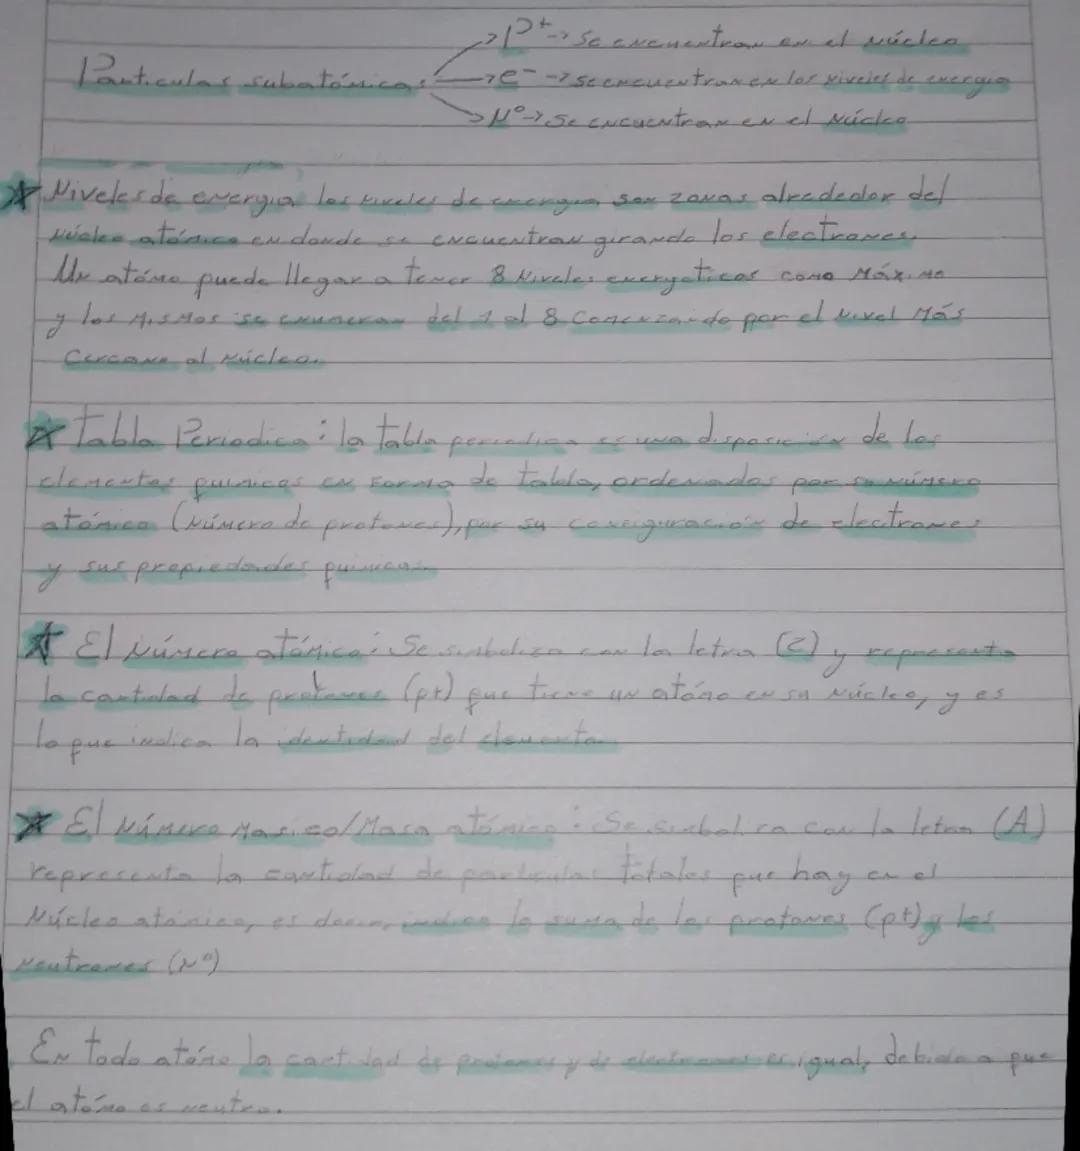 P+ -> Se encuentran en el núcleo
Particulas subatómicas -> e- -> se encuentran en los niveles de energia
-> N° -> Se encuentran en el Núcleo
Niveles de energia los niveles de energia son zonas alrededor del
núcleo atómico en donde se encuentran girando los electrones.
Un atómo puede llegar a tener 8 Niveles energeticos como Máximo
y los mismos se enumeran del 1 al 8 Comenzando por el Nivel Más
Cercano al núcleo.
Tabla Periodica: la tabla periodica es una disposición de los
elementos quimicos en forma de tabla, ordenados por su número
atómico (número de protones), por su configuración de electrones
y sus propiedades quimicas.
El número atómico: Se simboliza con la letra (Z) y representa
la cantidad de protones (p+) que tiene un atómo en su núcleo, y es
lo que indica la identidad del elemento.
El número Masico/Masa atómica: Se simboliza con la letra (A)
representa la cantidad de particulas totales que hay en el
Núcleo atómico, es decir, indica la suma de los protones (p+) y los
neutrones (N°)
En todo atómo la cantidad de protones y de electrones es igual, debido a que
el atómo es neutro.